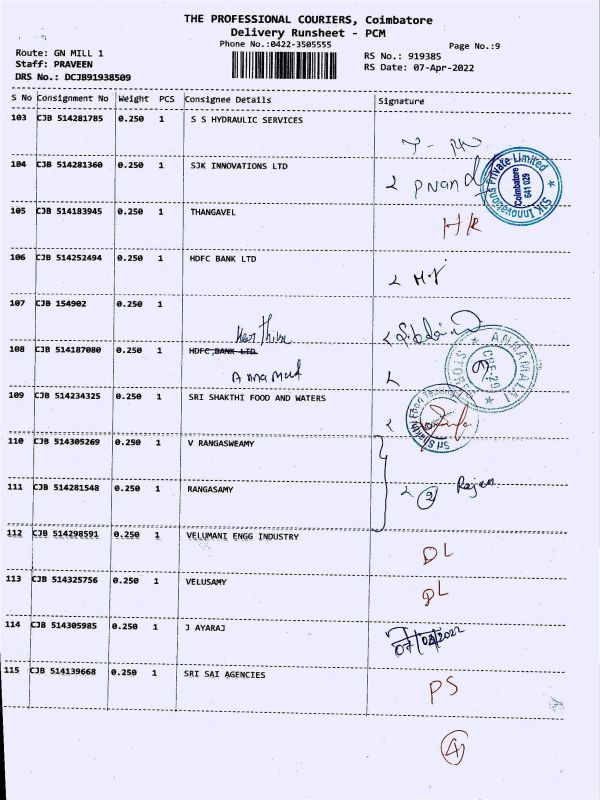 THE PROFESSIONAL COURIERS, Coimbatore
Delivery Runsheet - PCM
Phone No.:0422-3505555
Page No.:9
Route: GN MILL 1
RS No.: 919385
Staff: PRAVEEN
RS Date: 07-Apr-2022
DRS No.: DCJB91938509
S No Consignment No Weight PCS Consignee Details Signature
103 CJB 514281785 0.250 1 S S HYDRAULIC SERVICES
104 CJB 514281360 0.250 1 SJK INNOVATIONS LTD
SJK Innovations Private Limited
Coimbatore
641 029
105 CJB 514183945 0.250 1 THANGAVEL
HR
106 CJB 514252494 0.250 1 HDFC BANK LTD
107 CJB 154902 0.250 1
108 CJB 514187080 0.250 1 HDFC BANK LTD
ANNAMALAI STORES
CBE-29
109 CJB 514234325 0.250 1 SRI SHAKTHI FOOD AND WATERS
110 CJB 514305269 0.250 1 V RANGASWEAMY
111 CJB 514281548 0.250 1 RANGASAMY
2 Rajan
112 CJB 514298591 0.250 1 VELUMANI ENGG INDUSTRY
DL
113 CJB 514325756 0.250 1 VELUSAMY
DL
114 CJB 514305985 0.250 1 J AYARAJ
07/04/2022
115 CJB 514139668 0.250 1 SRI SAI AGENCIES
PS
4